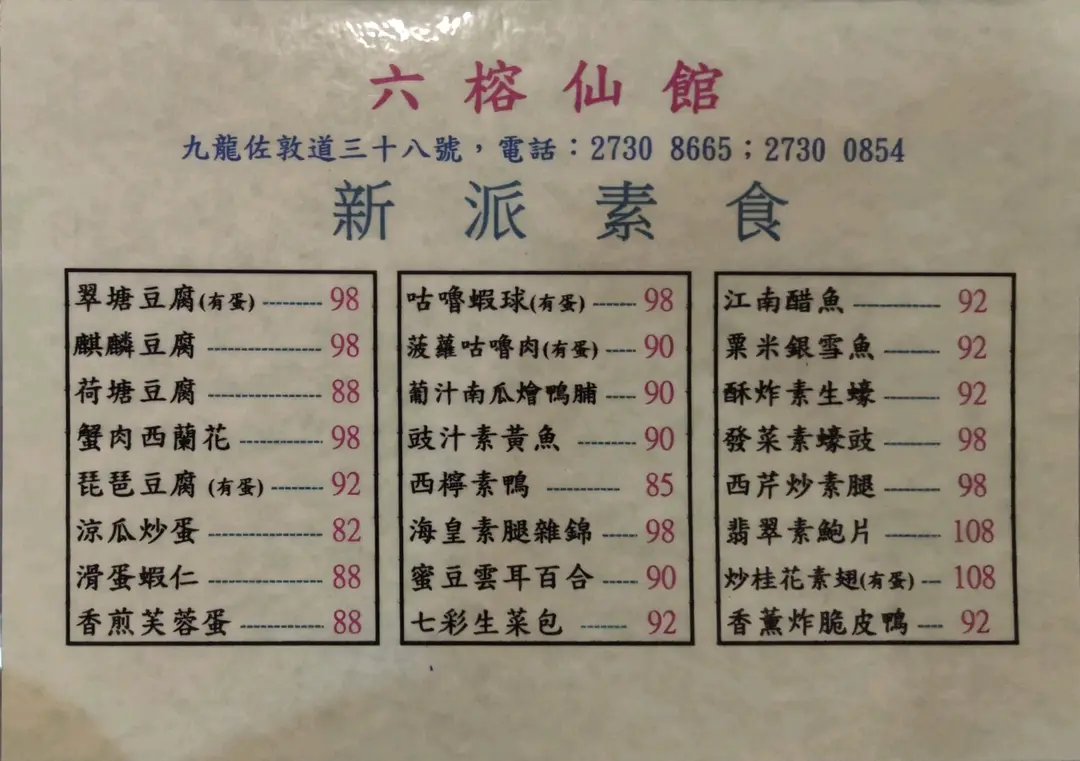 六榕仙館
九龍佐敦道三十八號，電話：2730 8665；2730 0854
新派素食
翠塘豆腐(有蛋) -------- 98
麒麟豆腐 -------- 98
荷塘豆腐 -------- 88
蟹肉西蘭花 -------- 98
琵琶豆腐 (有蛋) -------- 92
涼瓜炒蛋 -------- 82
滑蛋蝦仁 -------- 88
香煎芙蓉蛋 -------- 88
咕嚕蝦球(有蛋) ----- 98
菠蘿咕嚕肉(有蛋) ---- 90
葡汁南瓜燴鴨脯 ---- 90
豉汁素黃魚 ------ 90
西檸素鴨 -------- 85
海皇素腿雜錦 ----- 98
蜜豆雲耳百合 ----- 90
七彩生菜包 ----- 92
江南醋魚 -------- 92
粟米銀雪魚 ------ 92
酥炸素生蠔 ------ 92
發菜素蠔豉 ------ 98
西芹炒素腿 ------ 98
翡翠素鮑片 ------ 108
炒桂花素翅(有蛋) -- 108
香薰炸脆皮鴨 --- 92